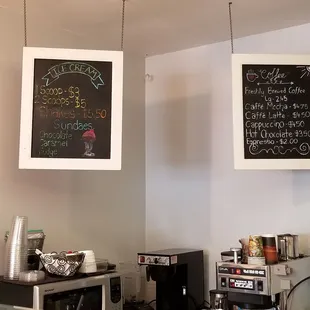 ICE CREAM
1 Scoop - $3
2 Scoops - $5
Sundaes
Chocolate
Caramel
Fudge
Coffee
Freshly Brewed Coffee
Lg 2.45
Caffe Mocha $4.75
Caffe Latte $4.50
Cappuccino $4.50
Hot Chocolate $3.50
Espresso $2.00